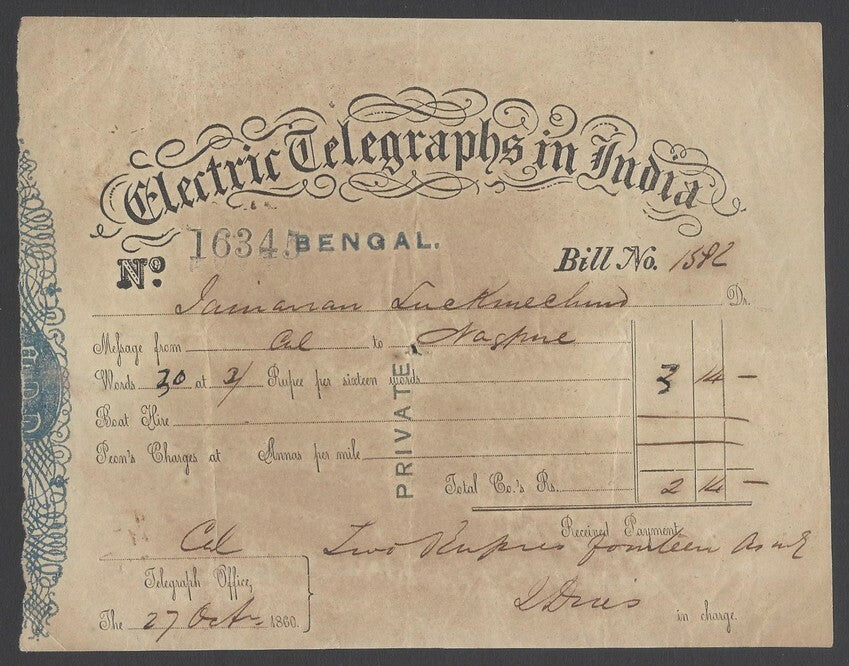 Electric Telegraphs in India
No. 16345 BENGAL.
Bill No. 1592
Jainarran Luckmeechund Dr.
Message from Cal to Nagpur
Words 30 at 2/ Rupee per sixteen words 3 14 –
Boat Hire
Peon's Charges at Annas per mile
PRIVATE.
Total Co.'s Rs. 2 14 –
Received Payment
Cal Two Rupees fourteen As
Telegraph Office,
The 27 Octr. 1860.
in charge.